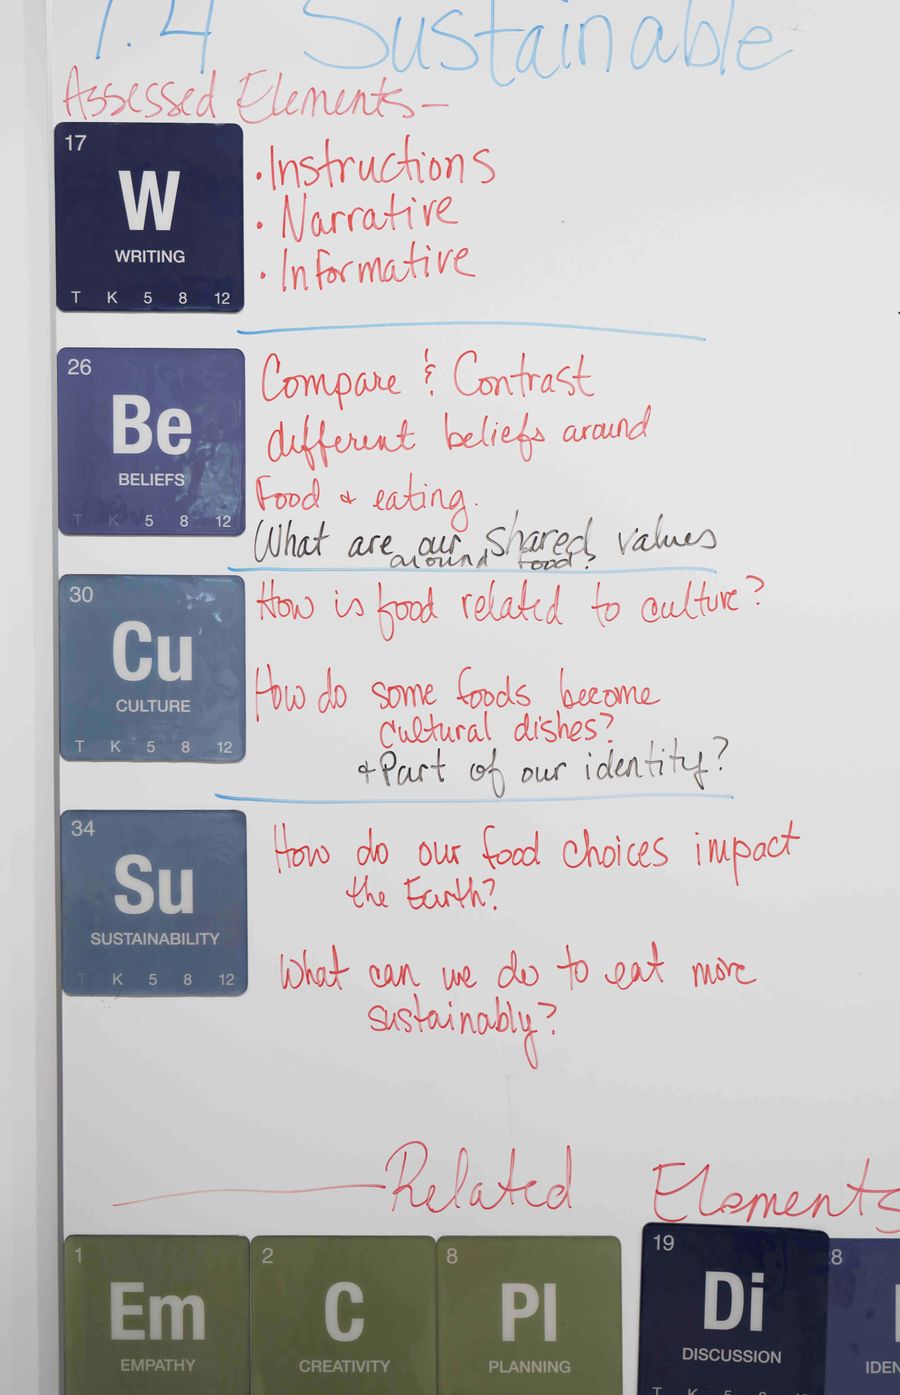 1.4 Sustainable
Assessed Elements–
17
W
WRITING
T K 5 8 12
• Instructions
• Narrative
• Informative
26
Be
BELIEFS
T K 5 8 12
Compare & Contrast
different beliefs around
Food & eating.
What are our shared values
around food?
30
Cu
CULTURE
T K 5 8 12
How is food related to culture?
How do some foods become
cultural dishes?
& Part of our identity?
34
Su
SUSTAINABILITY
T K 5 8 12
How do our food choices impact
the Earth?
What can we do to eat more
sustainably?
Related Elements
1
Em
EMPATHY
2
C
CREATIVITY
8
Pl
PLANNING
19
Di
DISCUSSION
T K 5 8 12
8
IDEN